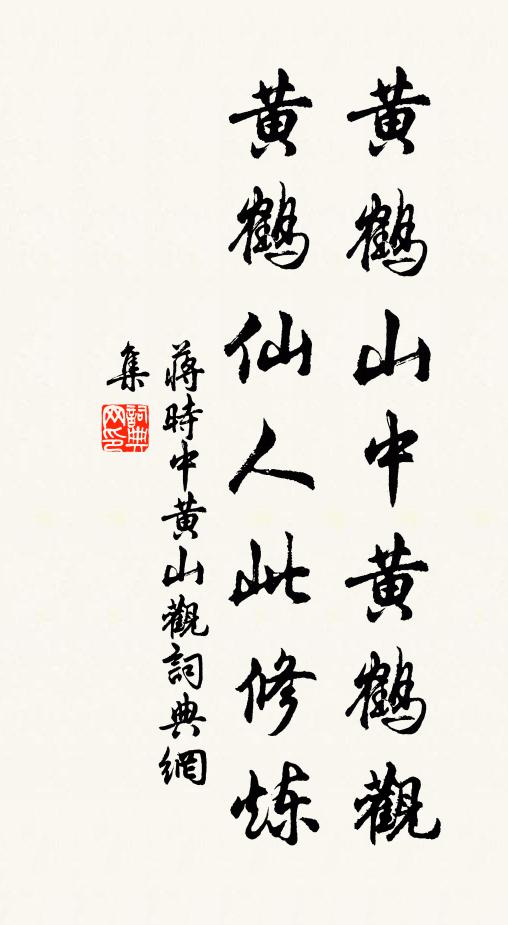 黄鶴山中黄鶴觀
黄鶴仙人此修炼
蔣時中黄山觀詞典網
集
詞典网印